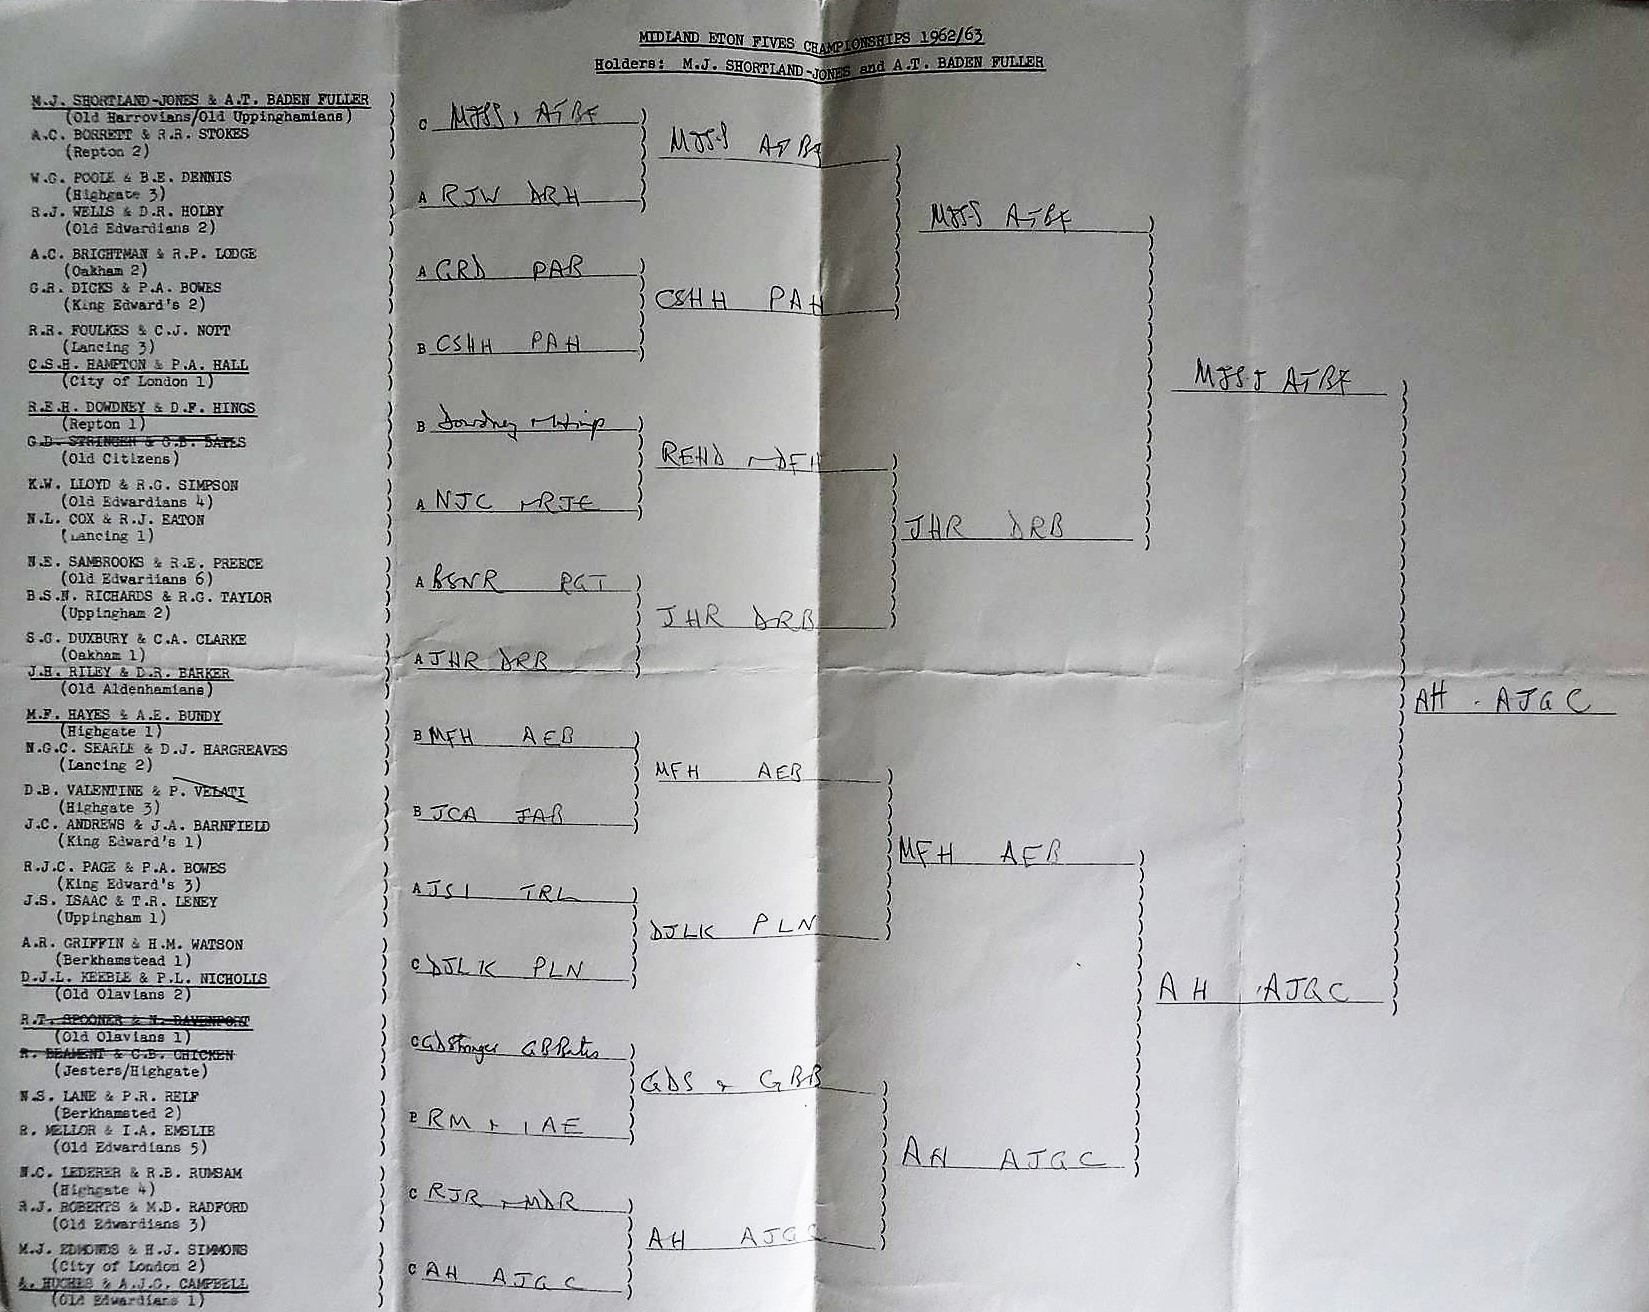 MIDLAND ETON FIVES CHAMPIONSHIPS 1962/63
Holders: M.J. SHORTLAND-JONES and A.T. BADEN FULLER
M.J. SHORTLAND-JONES & A.T. BADEN FULLER
(Old Harrovians/Old Uppinghamians)
A.C. BORRETT & R.R. STOKES
(Repton 2)
W.G. POOLE & B.E. DENNIS
(Highgate 3)
R.J. WELLS & D.R. HOLBY
(Old Edwardians 2)
A.C. BRIGHTMAN & R.P. LODGE
(Oakham 2)
G.R. DICKS & P.A. BOWES
(King Edward's 2)
R.R. FOULKES & C.J. NOTT
(Lancing 3)
C.S.H. HAMPTON & P.A. HALL
(City of London 1)
R.E.H. DOWDNEY & D.F. HINGS
(Repton 1)
G.D. STRINGER & G.B. BATES
(Old Citizens)
K.W. LLOYD & R.G. SIMPSON
(Old Edwardians 4)
N.L. COX & R.J. EATON
(Lancing 1)
N.E. SAMBROOKS & R.E. PREECE
(Old Edwardians 6)
B.S.N. RICHARDS & R.G. TAYLOR
(Uppingham 2)
S.G. DUXBURY & C.A. CLARKE
(Oakham 1)
J.H. RILEY & D.R. BARKER
(Old Aldenhamians)
M.F. HAYES & A.E. BUNDY
(Highgate 1)
N.G.C. SEARLE & D.J. HARGREAVES
(Lancing 2)
D.B. VALENTINE & P. VELATI
(Highgate 3)
J.C. ANDREWS & J.A. BARNFIELD
(King Edward's 1)
R.J.C. PAGE & P.A. BOWES
(King Edward's 3)
J.S. ISAAC & T.R. LENEY
(Uppingham 1)
A.R. GRIFFIN & H.M. WATSON
(Berkhamstead 1)
D.J.L. KEEBLE & P.L. NICHOLLS
(Old Olavians 2)
R.T. SPOONER & N. DAVENPORT
(Old Olavians 1)
R. BEAMENT & C.B. CHICKEN
(Jesters/Highgate)
N.S. LANE & P.R. RELF
(Berkhamsted 2)
R. MELLOR & I.A. EMSLIE
(Old Edwardians 5)
N.C. LEDERER & R.B. RUMSAM
(Highgate 4)
R.J. ROBERTS & M.D. RADFORD
(Old Edwardians 3)
M.J. EDMONDS & H.J. SIMMONS
(City of London 2)
A. HUGHES & A.J.G. CAMPBELL
(Old Edwardians 1)
C MJSJ, ATBF
A RJW DRH
A GRD PAB
B CSHH PAH
B Dowdney + Hings
A NJC + RJE
A BSNR RGT
A JHR DRB
B MFH AEB
B JCA JAB
A JSI TRL
C DJLK PLN
C GDStringer GBBates
B RM + IAE
C RJR + MDR
C AH AJGC
MJS-J ATBF
CSHH PAH
REHD + DFH
JHR DRB
MFH AEB
DJLK PLN
GDS + GBB
AH AJGC
MJS-J ATBF
JHR DRB
MFH AEB
AH AJGC
MJSJ ATBF
AH AJGC
AH . AJGC